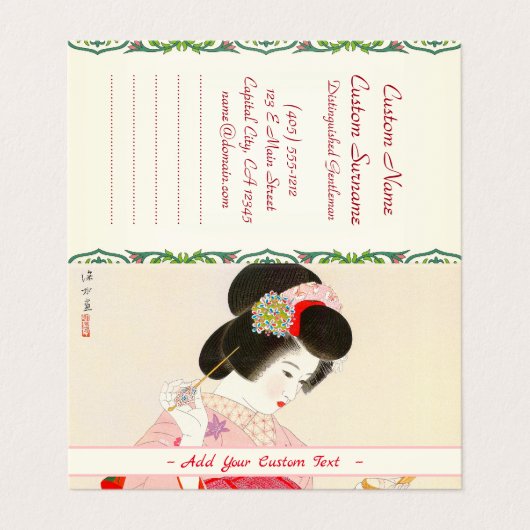 Custom Name
Custom Surname
Distinguished Gentleman
(405) 555-1212
123 E Main Street
Capital City, CA 12345
name@domain.com
深水画
~ Add Your Custom Text ~